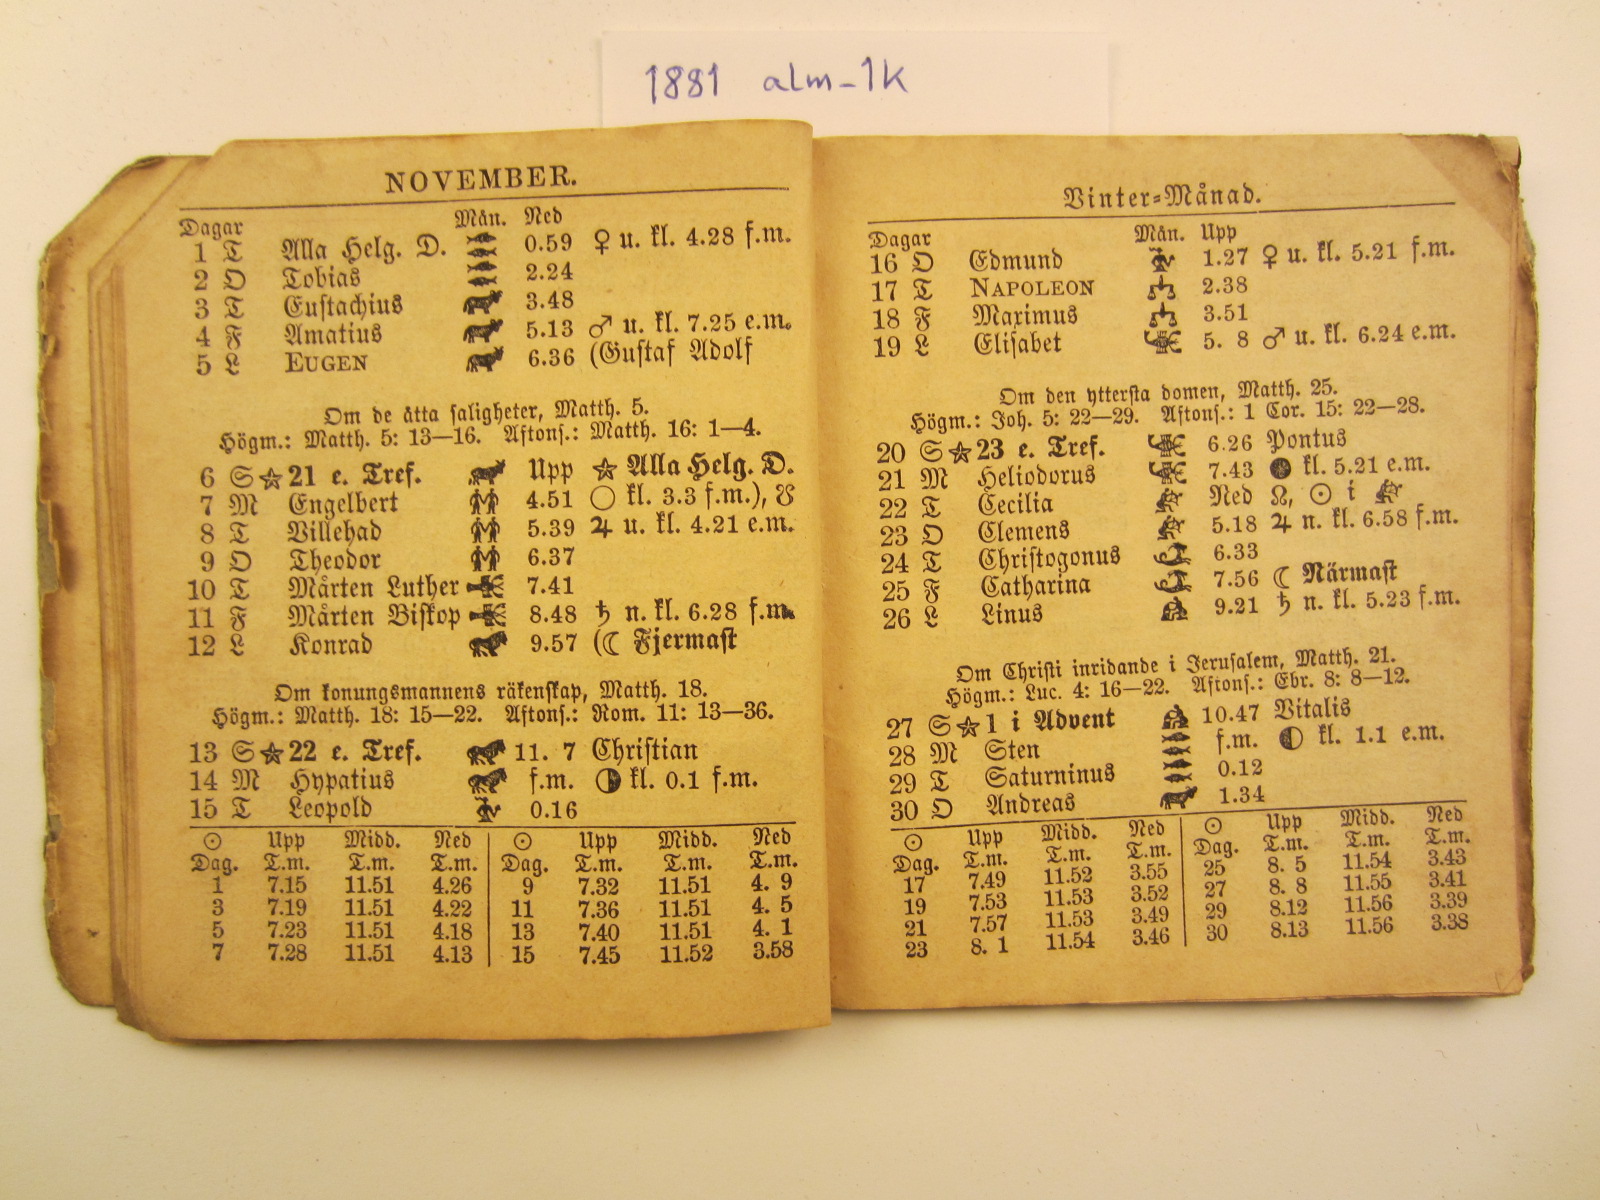 1881 alm-1k
NOVEMBER.
Dagar Mån. Ned
1 T Alla Helg. D. 0.59 ♀ u. kl. 4.28 f.m.
2 O Tobias 2.24
3 T Eustachius 3.48
4 F Amatius 5.13 ♂ u. kl. 7.25 e.m.
5 L EUGEN 6.36 (Gustaf Adolf
Om de åtta saligheter, Matth. 5.
Högm.: Matth. 5: 13—16. Aftons.: Matth. 16: 1—4.
6 S ☆ 21 e. Tref. Upp ☆ Alla Helg. D.
7 M Engelbert 4.51 ○ kl. 3.3 f.m.), ☋
8 T Villehad 5.39 ♃ u. kl. 4.21 e.m.
9 O Theodor 6.37
10 T Mårten Luther 7.41
11 F Mårten Biskop 8.48 ♄ n. kl. 6.28 f.m.
12 L Konrad 9.57 (☾ Fjermast
Om konungsmannens räkenskap, Matth. 18.
Högm.: Matth. 18: 15—22. Aftons.: Rom. 11: 13—36.
13 S ☆ 22 e. Tref. 11. 7 Christian
14 M Hypatius f.m. ◑ kl. 0.1 f.m.
15 T Leopold 0.16
☉ Upp Midd. Ned ☉ Upp Midd. Ned
Dag. T.m. T.m. T.m. Dag. T.m. T.m. T.m.
1 7.15 11.51 4.26 9 7.32 11.51 4. 9
3 7.19 11.51 4.22 11 7.36 11.51 4. 5
5 7.23 11.51 4.18 13 7.40 11.51 4. 1
7 7.28 11.51 4.13 15 7.45 11.52 3.58
Vinter-Månad.
Dagar Mån. Upp
16 O Edmund 1.27 ♀ u. kl. 5.21 f.m.
17 T NAPOLEON 2.38
18 F Maximus 3.51
19 L Elisabet 5. 8 ♂ u. kl. 6.24 e.m.
Om den yttersta domen, Matth. 25.
Högm.: Joh. 5: 22—29. Aftons.: 1 Cor. 15: 22—28.
20 S ☆ 23 e. Tref. 6.26 Pontus
21 M Heliodorus 7.43 ● kl. 5.21 e.m.
22 T Cecilia Ned ☊, ☉ i ♐
23 O Clemens 5.18 ♃ n. kl. 6.58 f.m.
24 T Christogonus 6.33
25 F Catharina 7.56 ☾ Närmast
26 L Linus 9.21 ♄ n. kl. 5.23 f.m.
Om Christi inridande i Jerusalem, Matth. 21.
Högm.: Luc. 4: 16—22. Aftons.: Ebr. 8: 8—12.
27 S ☆ 1 i Advent 10.47 Vitalis
28 M Sten f.m. ◐ kl. 1.1 e.m.
29 T Saturninus 0.12
30 O Andreas 1.34
☉ Upp Midd. Ned ☉ Upp Midd. Ned
Dag. T.m. T.m. T.m. Dag. T.m. T.m. T.m.
17 7.49 11.52 3.55 25 8. 5 11.54 3.43
19 7.53 11.53 3.52 27 8. 8 11.55 3.41
21 7.57 11.53 3.49 29 8.12 11.56 3.39
23 8. 1 11.54 3.46 30 8.13 11.56 3.38